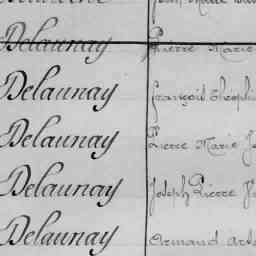 Delaunay Pierre Marie
Delaunay François Théophi
Delaunay Pierre Marie J
Delaunay Joseph Pierre
Delaunay Armand